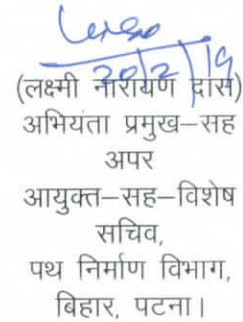 20/2/19
(लक्ष्मी नारायण दास)
अभियंता प्रमुख–सह
अपर
आयुक्त–सह–विशेष
सचिव,
पथ निर्माण विभाग,
बिहार, पटना।